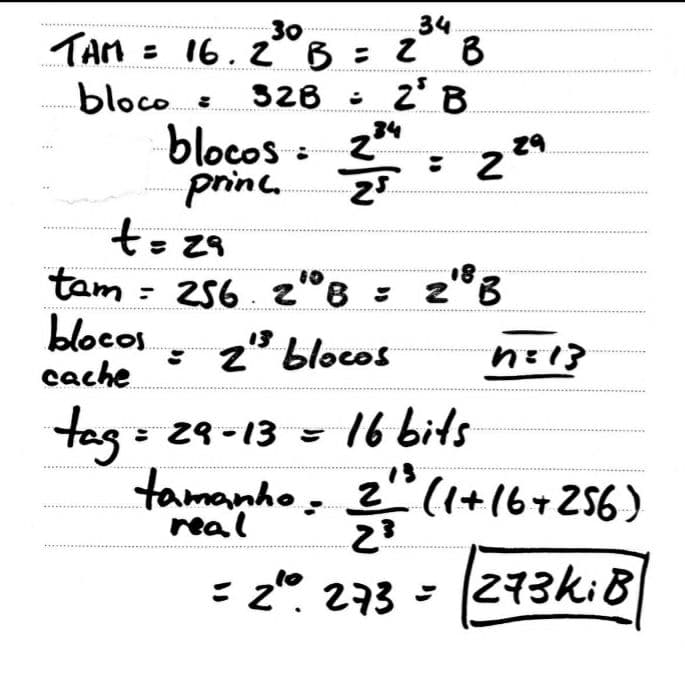 TAM = 16 . 2³⁰ B = 2³⁴ B
bloco = 32B = 2⁵ B
blocos princ. = 2³⁴ / 2⁵ = 2²⁹
t = 29
tam = 256 . 2¹⁰ B = 2¹⁸ B
blocos cache = 2¹³ blocos n = 13
tag = 29 - 13 = 16 bits
tamanho real = 2¹³ / 2³ (1 + 16 + 256)
= 2¹⁰ . 273 = 273 KiB